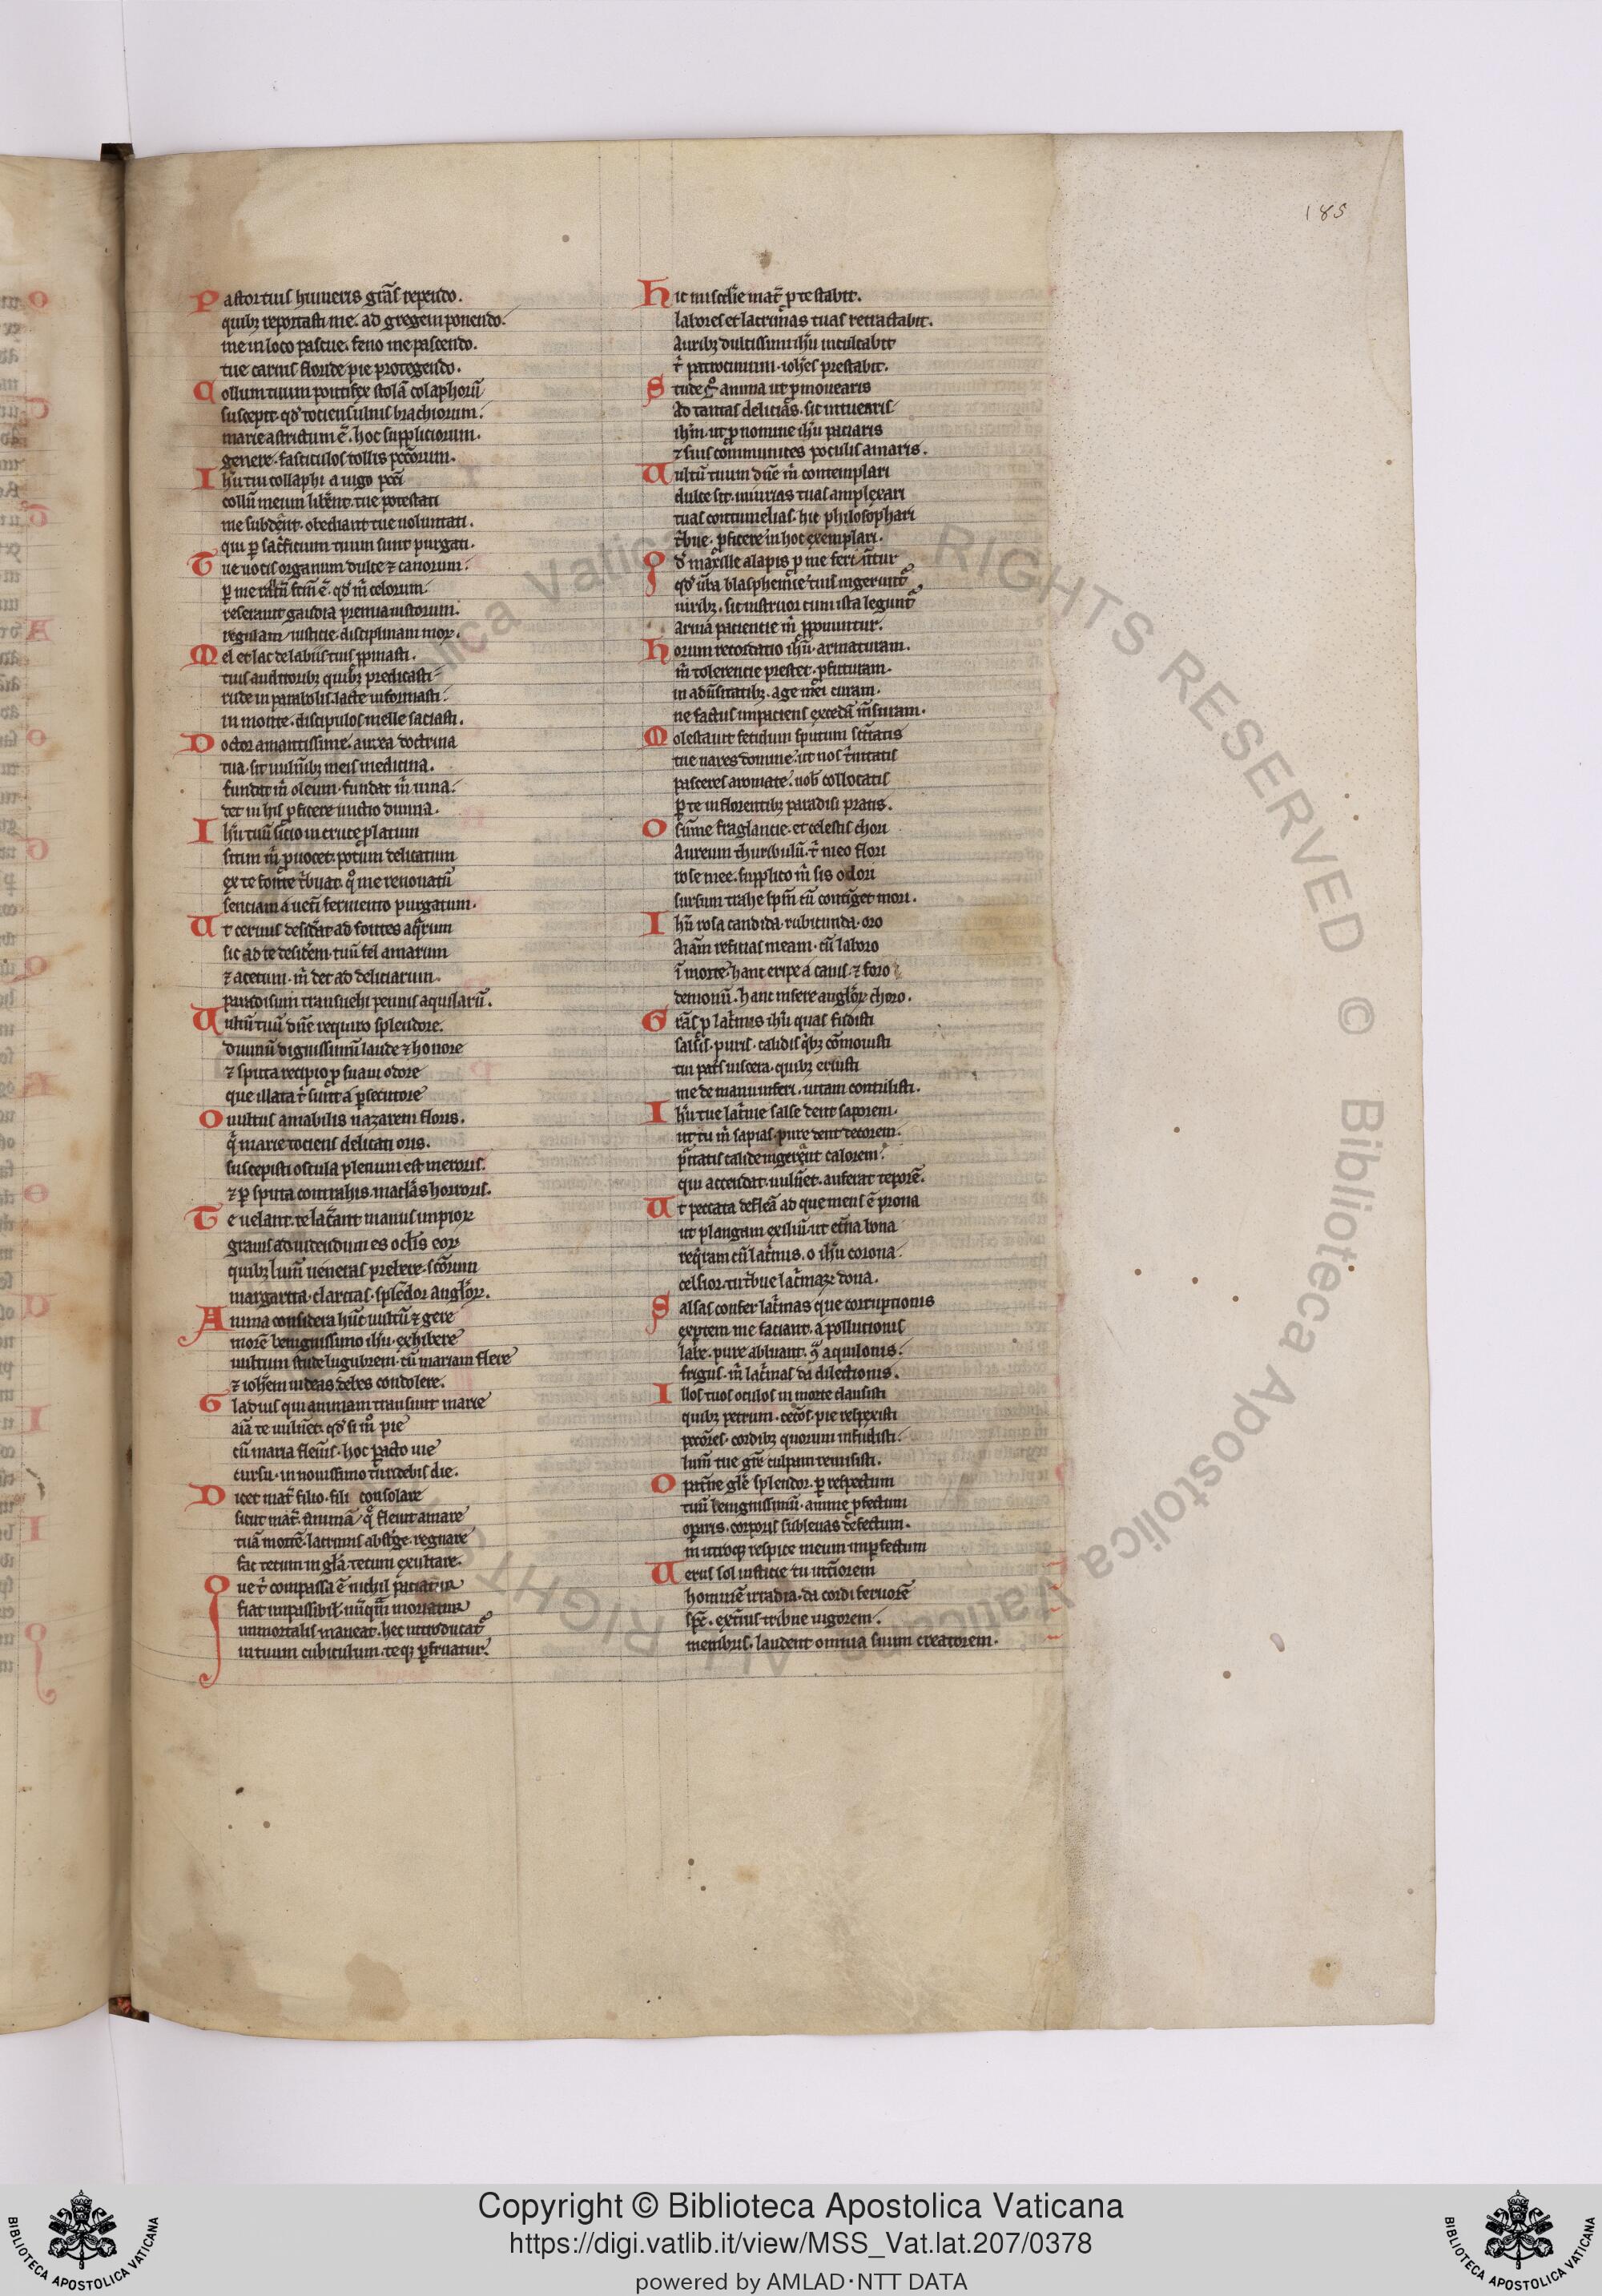 185
Pastor tuis humeris grãs rependo.
quibȝ reportasti me. ad gregem ponendo.
me in loco pascue. feno me pascendo.
tue carnis floride pie protegendo.
Collum tuum pontifex stolã colaphorũ
suscepit. qđ tociens ulnis brachiorum.
marie astrictum ẽ. hoc suppliciorum.
genere. fasciculos tollis pccõrum.
Ihũ tui collaphi a iugo pcci
collũ meum libẽnt. tue potestati
me subdẽnt. obediant tue uoluntati.
qui ꝑ sacͥficium tuum sunt purgati.
Tue uocis organum dulce ⁊ canorum.
ꝑ me
reserauit gaudia premia iustorum.
regulam iusticie. disciplinam moꝝ.
Mel et lac de labiis tuis ꝓpinasti.
tuis auditoribȝ quibȝ predicasti
rude in parabolis. lacte informasti.
in monte. discipulos melle saciasti.
Doctor amantissime. aurea doctrina
tua. sit uulnĩbȝ meis medicina.
fundat m̃ oleum. fundat m̃ uina.
det in hiis ꝓficere unctio diuina.
Ihũ tuũ sicio in cruce platum
sitim m̃ ꝓuocet. potum delicatum
ex te fonte tͥbuat. qͦ me renouatũ
senciam a uetĩ fermento purgatum.
Ut ceruus desidat ad fontes aqͣrum
sic ad te desidẽm. tuũ fel amarum
⁊ acetum. m̃ det ad deliciarum.
paradisum transuehi pennis aquilarũ.
Uultũ tuũ dñe requiro splendore.
diuinũ dignissimũ laude ⁊ honore
⁊ sputa recipio ꝓ suaui odore
que illata tͥ sunt a ꝑsecutore
O uultus amabilis nazareni floris.
qͥ marie tociens delicati oris.
suscepisti oscula plenum est meroris.
⁊ ꝑ sputa contrahis. maclãs horroris.
Te uelant. te lacͣant manus impioꝝ
grauis ad uidendum es oclĩs eoꝝ
quibȝ lum̃ ueneras prebere. scõrum
margarita. claritas. splẽdor angloꝝ.
Anima considera hũc uultũ ⁊ gere
morẽ benignissimo ihũ. exhibere
uultum stude lugubrem. cũ mariam flere
⁊ iohẽm uideas. debes condolere.
Gladius qui animam transiuit marie
aĩã te uulnet. qđ si m̃ pie
cũ maria fleuĩs. hoc pacto uie
cursu. in nouissimo tͥ ridebis die.
Dicet matͥ filio. fili consolare
sicut matͥ. animã qͣ fleuit amare
tuã mortẽ. lacrimis abstͥge. regnare
fac tecum in glã. tecum exultare.
Que tͥ compassa ẽ nichil paciatur
fiat impassibilͥ. nũqͣm moriatur
immortalis maneat. hec introducatͬ
in tuum cubiculum. teqȝ ꝑfruatur.
Hic miscdĩe matͥ ꝓ te stabit.
labores et lacrimas tuas retractabit.
Auribȝ dulcissimi ihũ inculcabit
tͥ patrocinium. iohẽs prestabit.
Stude gͦ anima ut ꝓmouearis
ad tantas delicias. sic intuearis
ihm̃. ut ꝓ nomine ihũ paciaris
⁊ suis communices poculis amaris.
Uultũ tuum dñe m̃ contemplari
dulce sit. iniurias tuas amplexari
tuas contumelias. hic philosophari
tͥbue. ꝓficere in hoc exemplari.
Qđ maxille alapis ꝓ me feriũtur
qđ uͥba blasphemie tuis ingeruntͬ
auribȝ. sic instruor cum ista leguntͬ
arma paciencie m̃ ꝓponuntur.
Horum recordatio ihũ. armaturam.
m̃ tolerencie prestet. ꝓficturam.
in adũsitatibȝ. age mei curam.
ne factus impaciens excedã m̃suram.
Molestant fetidum sputum
tue nares domine. ut nos
pasceres aromate. nob̃ collocatis
ꝑ te in florentibȝ paradisi pratis.
O sũme fraglancie. et celestis chori
Aureum thuribulũ. tͥ meo flori
rose mee. supplico m̃ sis odori
sursum trahe spm̃ cũ contiget mori.
Ihũ rosa candida. rubicunda. oro
Aĩam reficias meam. cũ laboro
ĩ morte. hanc eripe a canis. ⁊ foro
demonũ. hanc insere angloꝝ choro.
Grãs ꝓ lacͥmis ihũ quas fudisti
salsis. puris. calidis qͥbȝ cõmouisti
tui patͥs uiscera. quibȝ eruisti
me de manu inferi. uitam contulisti.
Ihũ tue lacͥme salse dent saporem.
ut tu m̃ sapias. pure dent decorem.
pͥtatis calide ingerant calorem.
qui accendat. uulnet. auferat teporẽ.
Ut peccata defleã ad que mens ẽ prona
ut plangam exiliũ. ut etͥna bona
reqͥram cũ lacͥmis. o ihũ corona
celsior. tu tͥbue lacͥmaꝝ dona.
Salsas confer lacͥmas que corruptionis
expertem me faciant. a pollucionis
labe. pure abluant. ꝯͣ aquilonis.
frigus. m̃ lacͥmas da dilectionis.
Illos tuos oculos in morte clausisti
quibȝ petrum. cetõs. pie respexisti
pccõres. cordibȝ quorum infudisti.
lum̃ tue grẽ culpam remisisti.
O patͥne glẽ splendor. ꝑ respectum
tuũ benignissimũ. anime ꝓfectum
oparis. corporis subleuas defectum.
in utroqȝ respice meum imꝑfectum
Uerus sol iusticie tu intĩorem
hominẽ irradia. da cordi feruorẽ
spẽ. extͥius tribue uigorem.
membris. laudent omnia suum creatorem.
RIGHTS RESERVED © Biblioteca Apostolica Vaticana
Copyright © Biblioteca Apostolica Vaticana
https://digi.vatlib.it/view/MSS_Vat.lat.207/0378
powered by AMLAD·NTT DATA
BIBLIOTECA APOSTOLICA VATICANA
BIBLIOTECA APOSTOLICA VATICANA